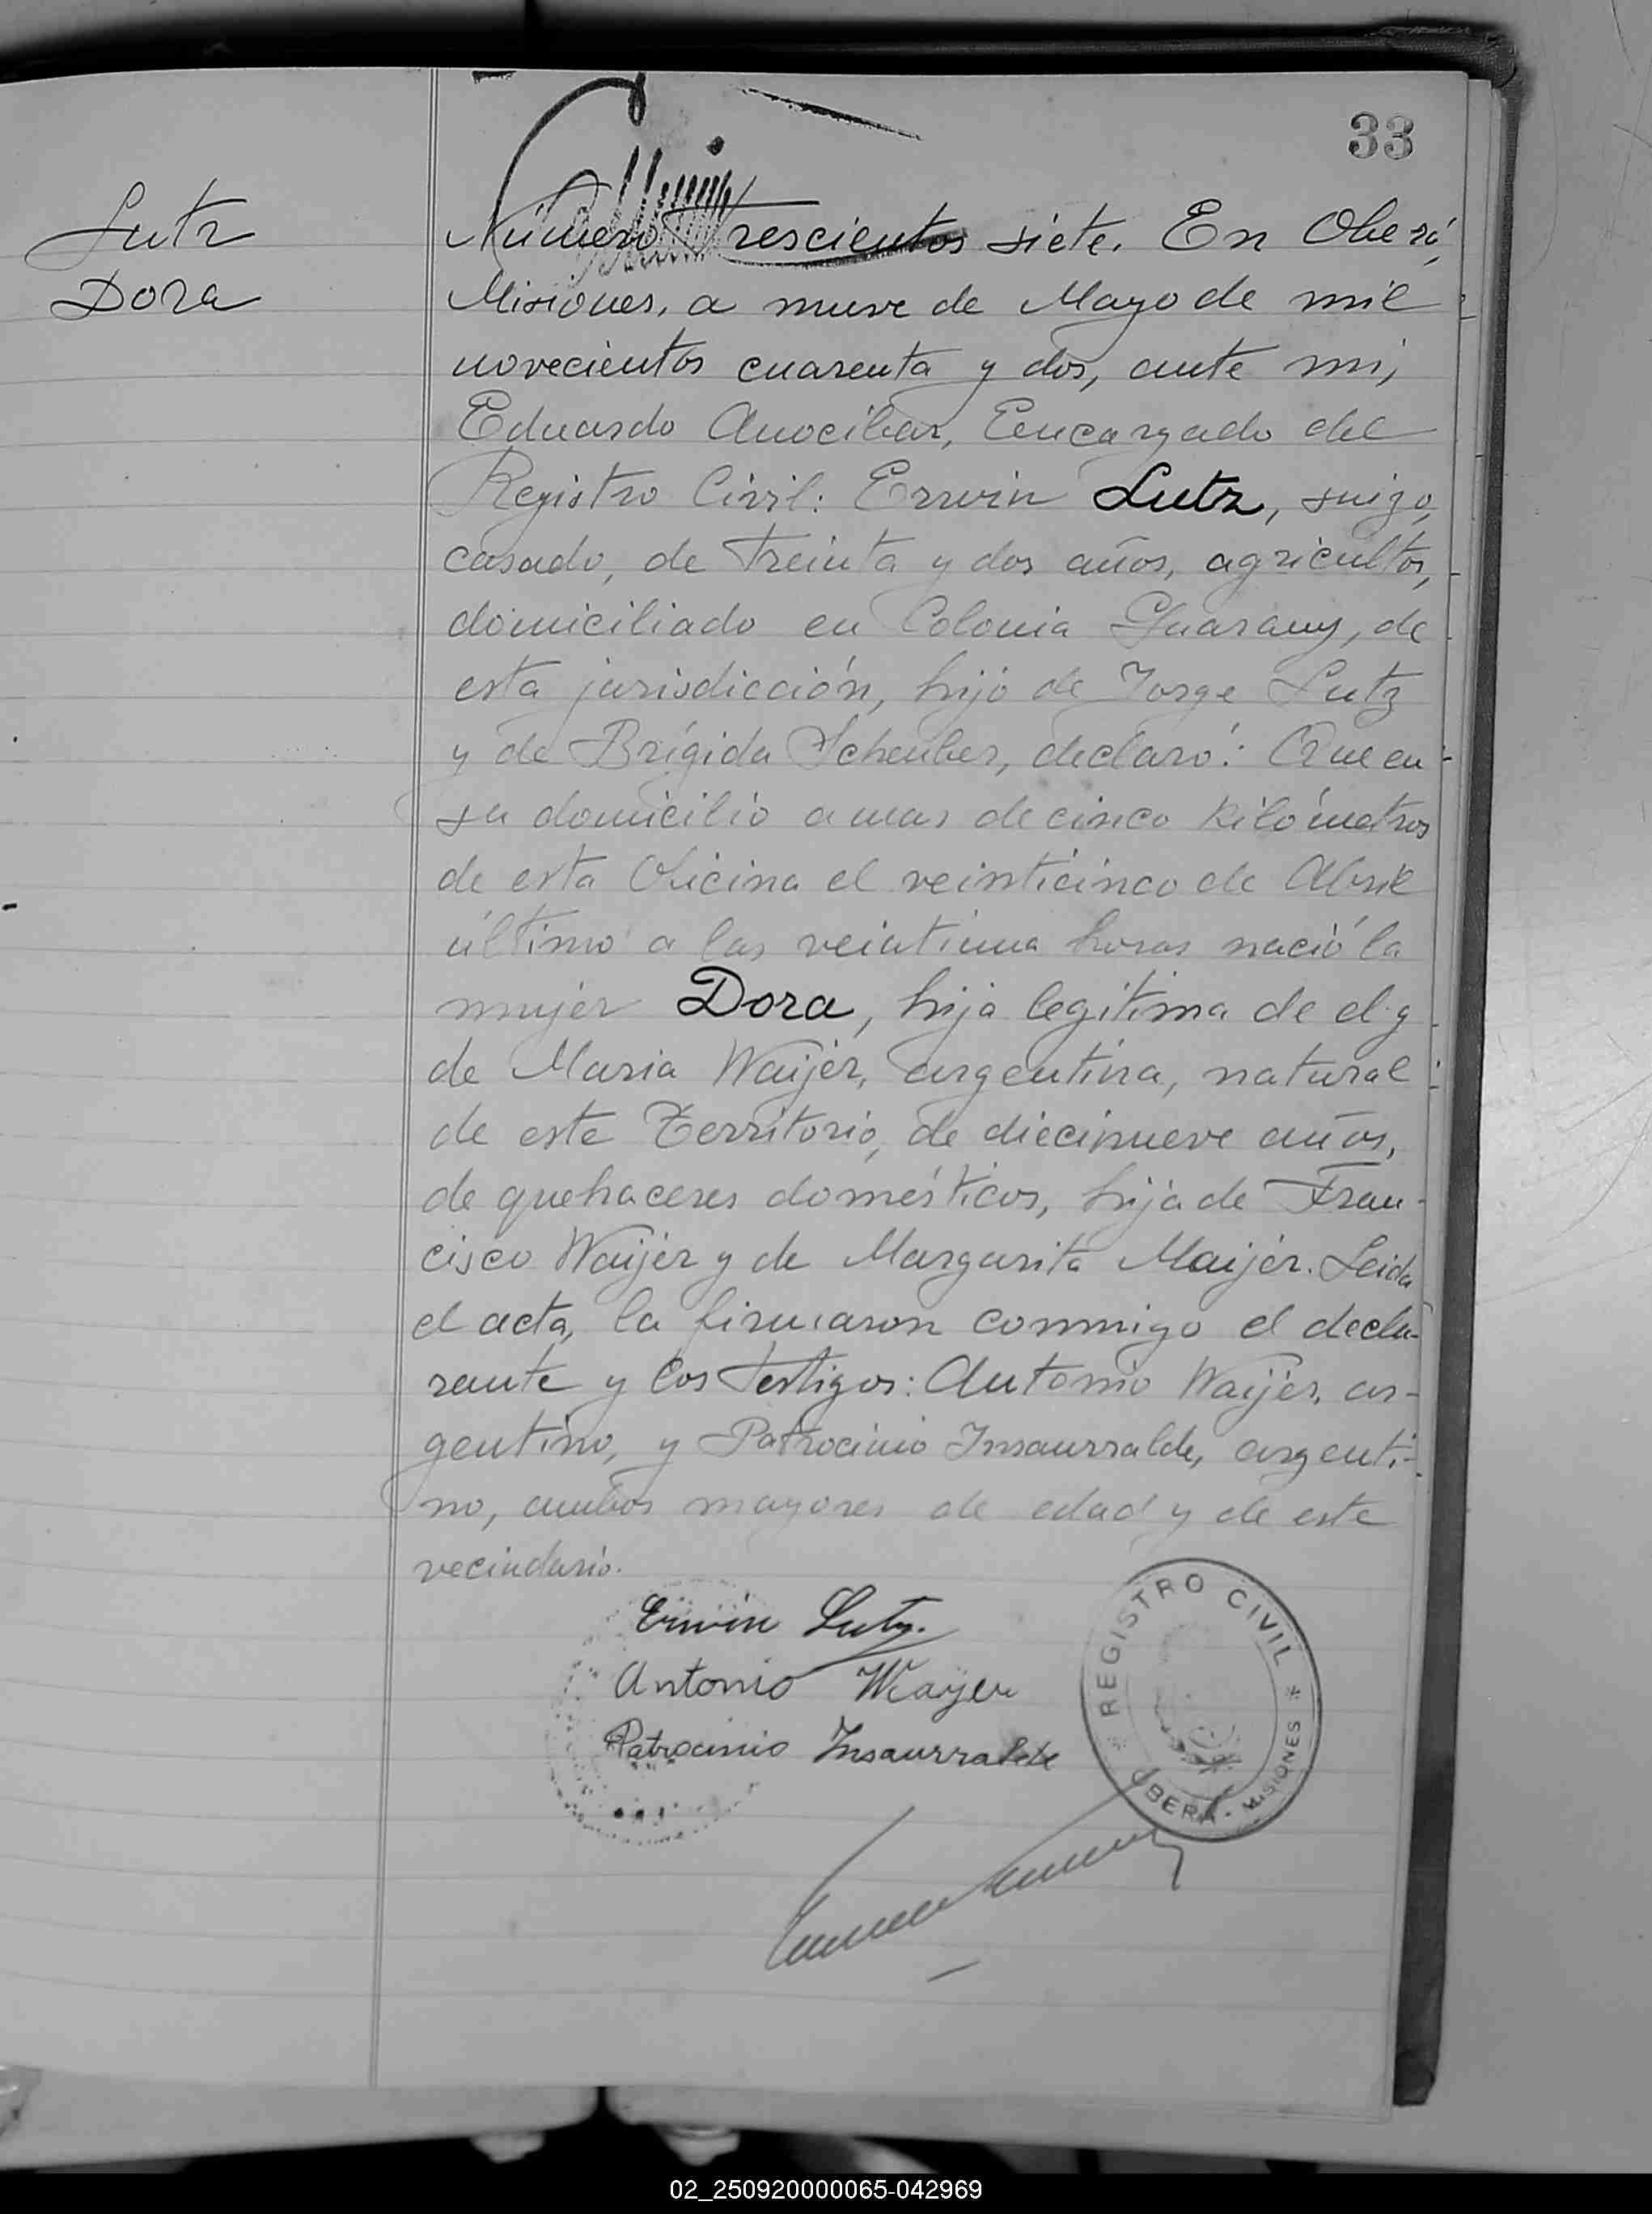 33
Lutz
Dora
Número Trescientos siete. En Oberá,
Misiones, a nueve de Mayo de mil
novecientos cuarenta y dos, ante mi,
Eduardo Anocibar, Encargado del
Registro Civil: Erwin Lutz, suizo,
casado, de treinta y dos años, agricultor,
domiciliado en Colonia Guarany, de
esta jurisdicción, hijo de Jorge Lutz
y de Brígida Scheuber, declaró: Que en
su domicilio a mas de cinco kilómetros
de esta Oficina el veinticinco de Abril
último a las veintiuna horas nació la
mujer Dora, hija legítima de el y
de Maria Waijer, argentina, natural
de este Territorio, de diecinueve años,
de quehaceres domésticos, hija de Fran-
cisco Waijer y de Margarita Maijer. Leida
el acta, la firmaron conmigo el decla-
rante y los testigos: Antonio Waijer, ar-
gentino, y Patrocinio Insaurralde, argenti-
no, ambos mayores de edad y de este
vecindario.
Erwin Lutz.
Antonio Wayer
Patrocinio Insaurralde
* REGISTRO CIVIL *
OBERÁ - MISIONES
02_250920000065-042969